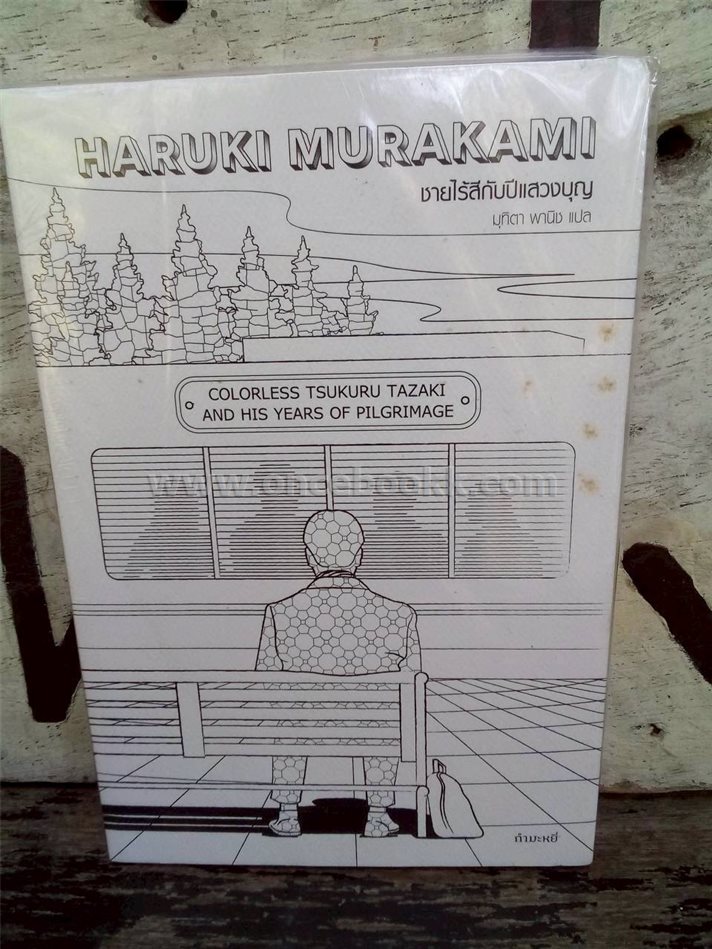 HARUKI MURAKAMI
ชายไร้สีกับปีแสวงบุญ
มุทิตา พานิช แปล
COLORLESS TSUKURU TAZAKI
AND HIS YEARS OF PILGRIMAGE
www.oncebookk.com
กำมะหยี่